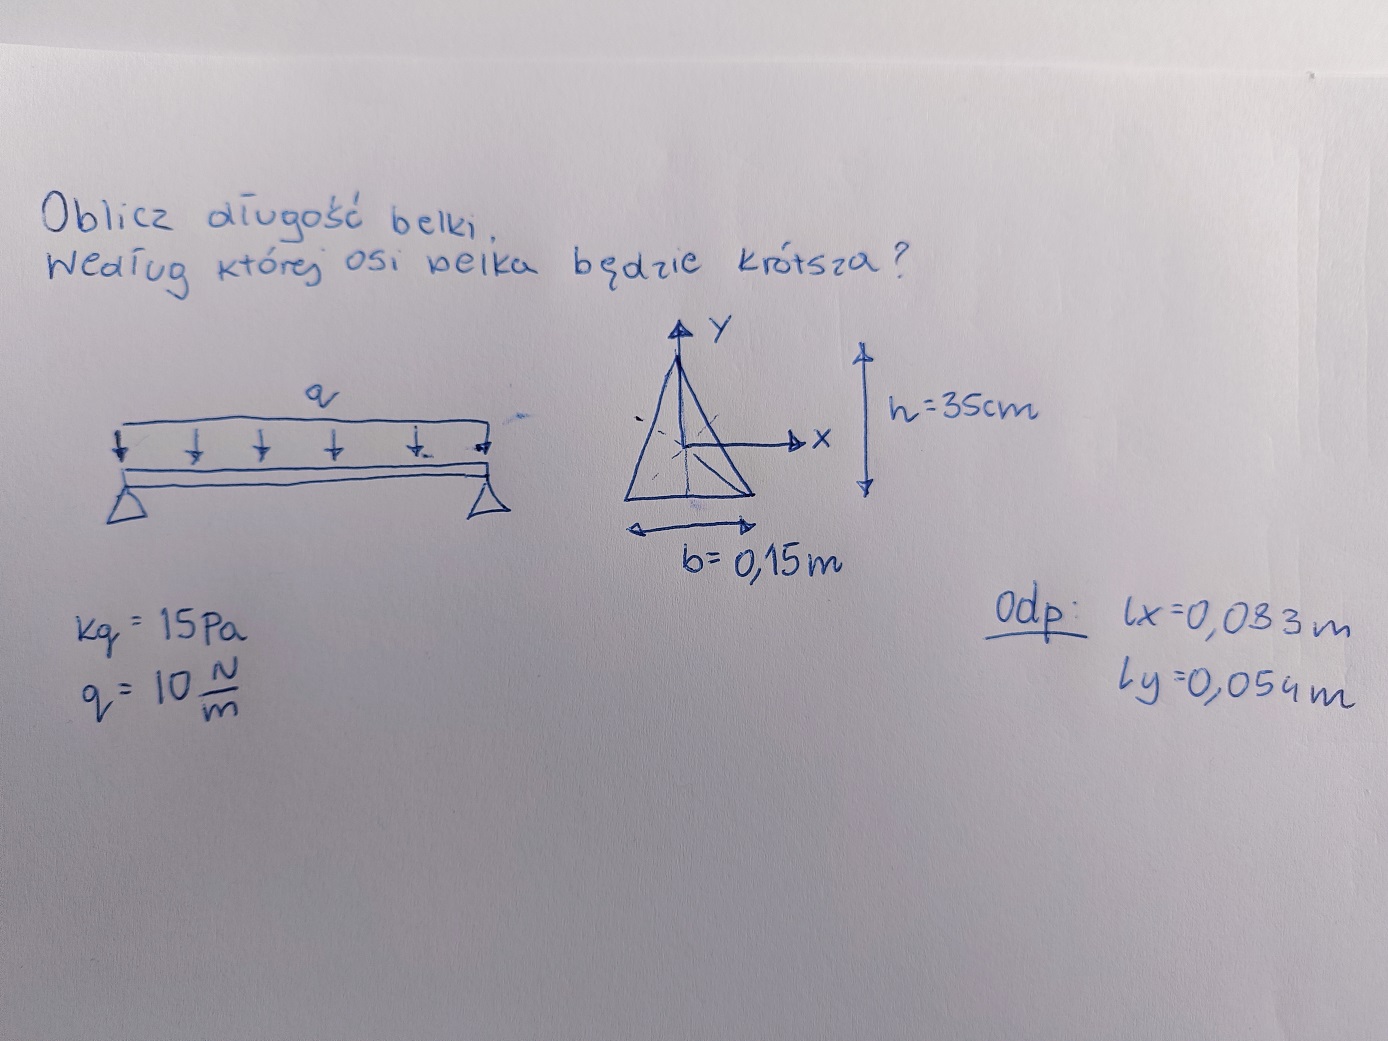 Oblicz długość belki.
Według której osi belka będzie krótsza?
q
y
x
h=35cm
b= 0,15m
kg = 15Pa
q = 10 N/m
Odp: lx=0,083m
ly=0,054m